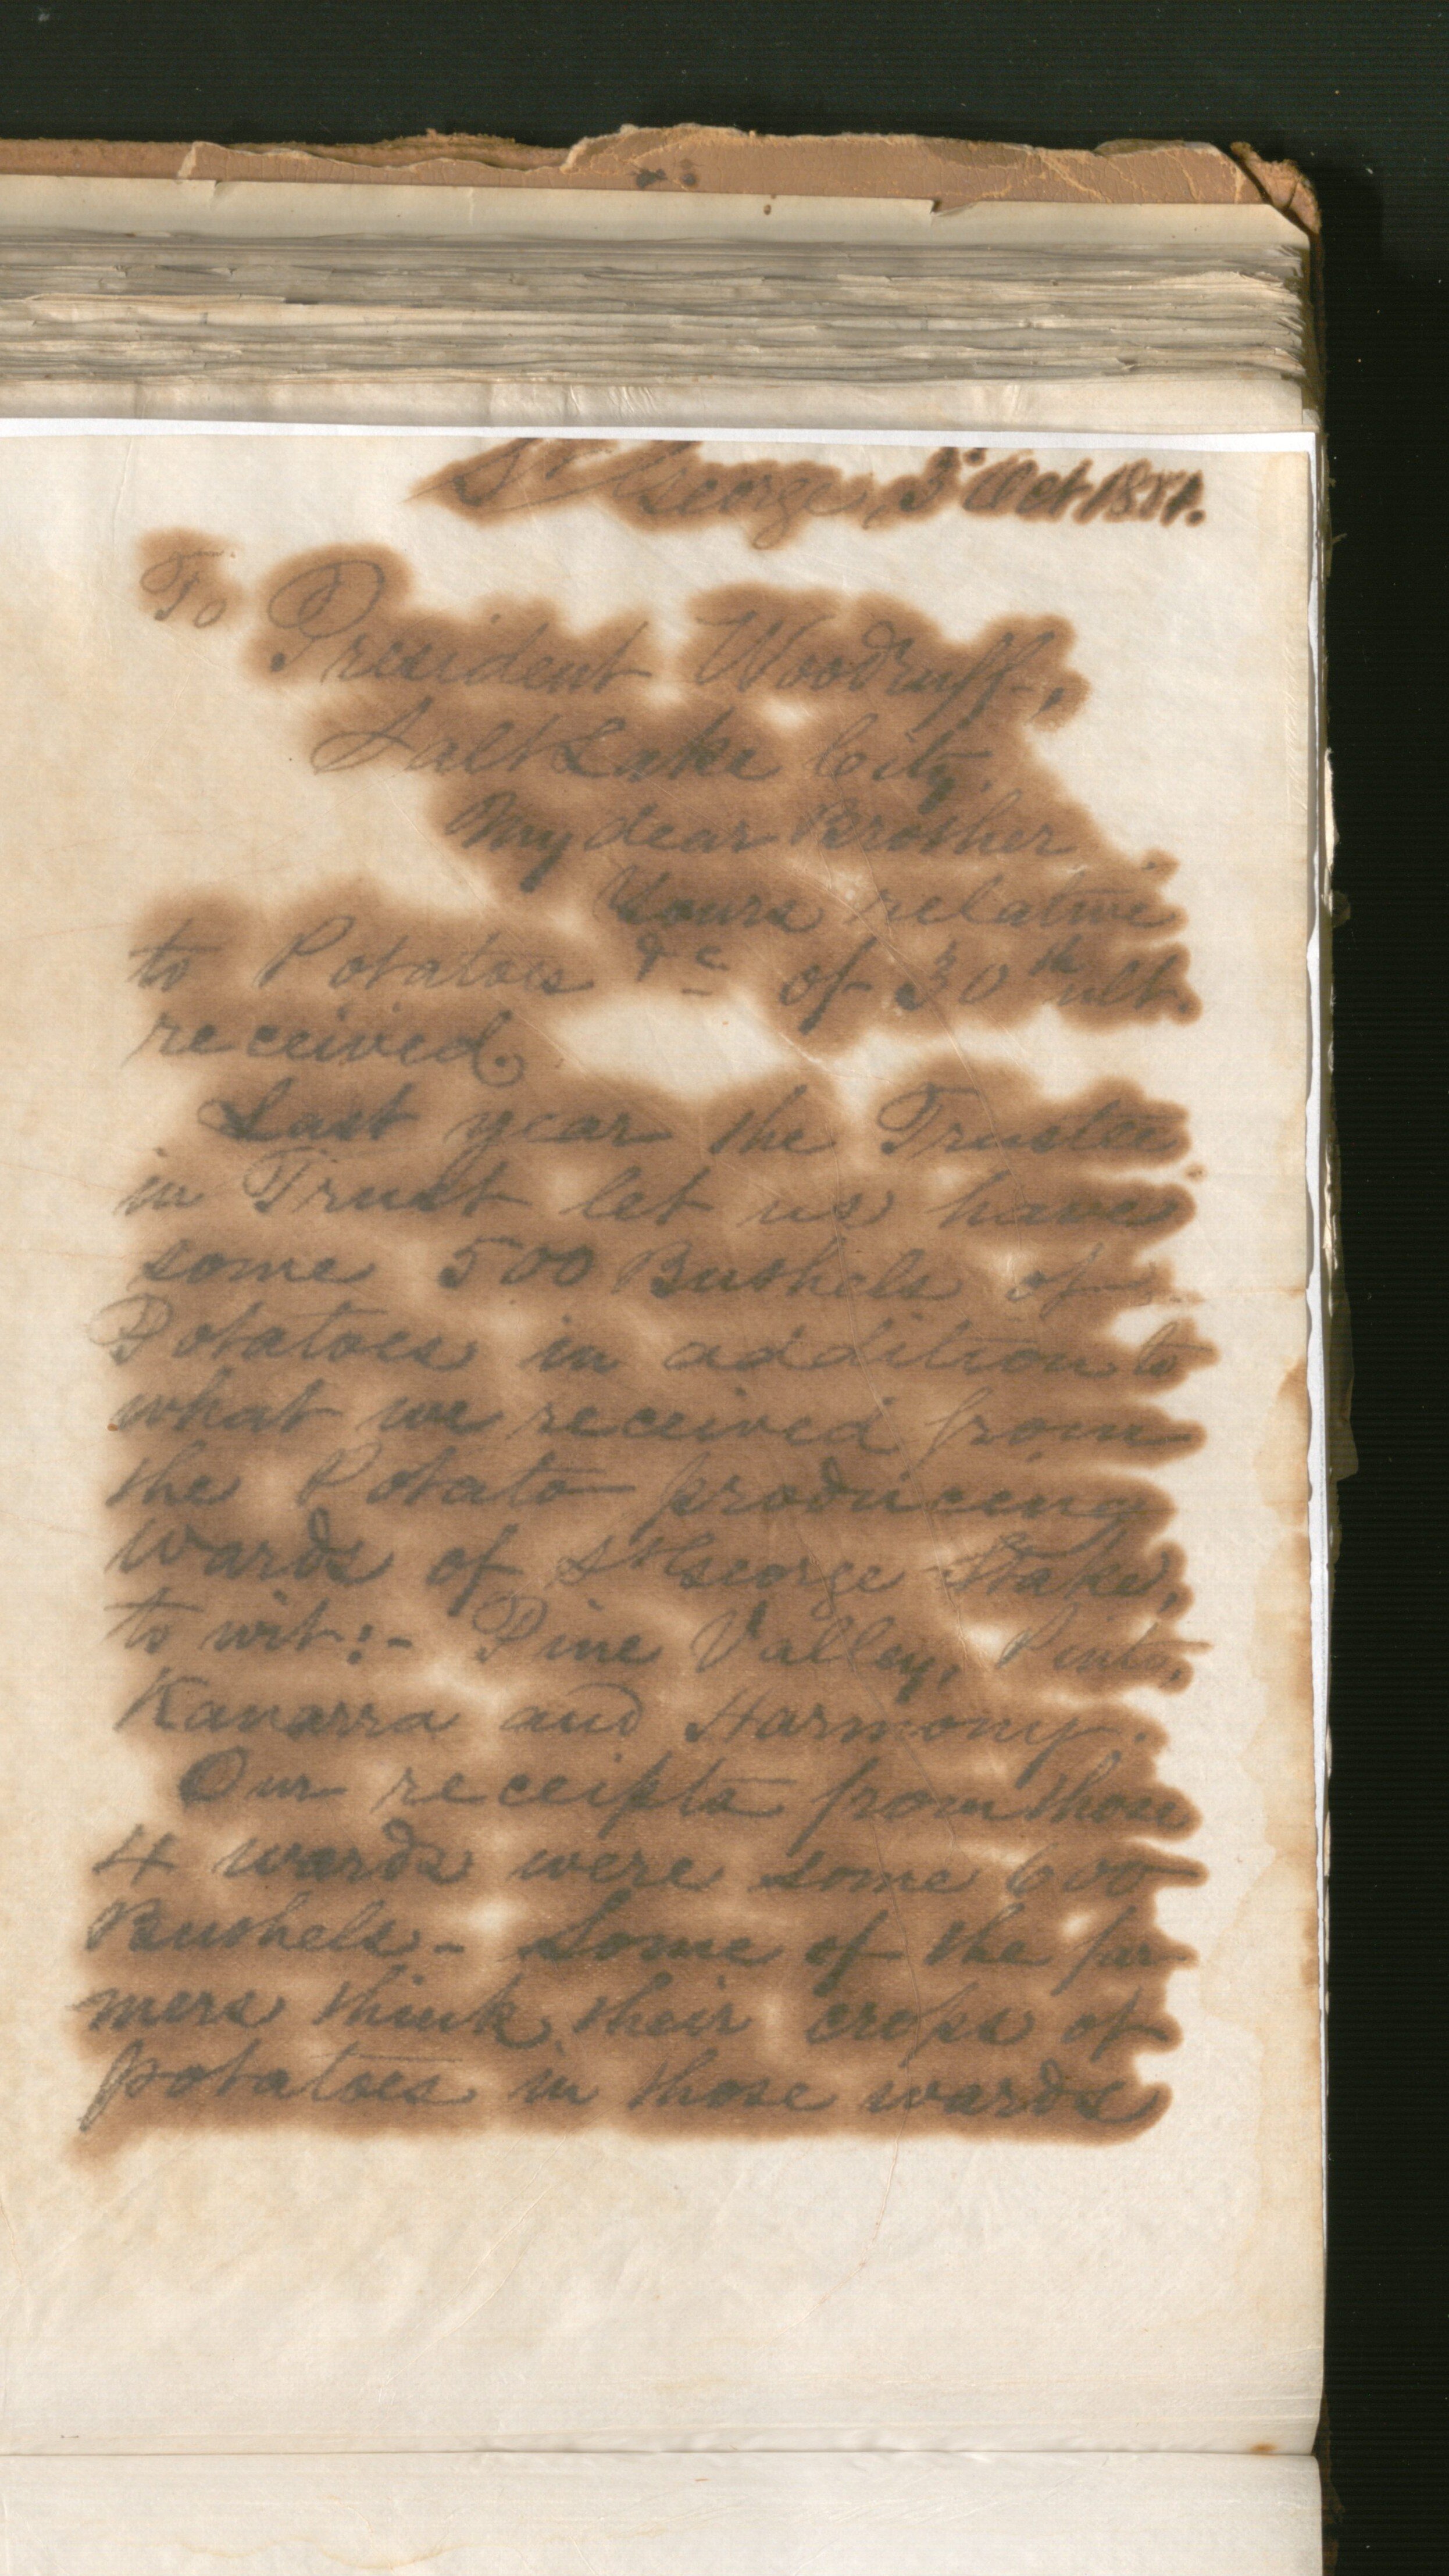 St George, 3d Oct 1881.
To President Woodruff,
Salt Lake City.
My dear Brother
Yours relative
to Potatoes &c of 30th ult.
received.
Last year the Trustee
in Trust let us have
some 500 Bushels of
Potatoes in addition to
what we received from
the Potato producing
Wards of St George Stake,
to wit:- Pine Valley, Pinto,
Kanarra and Harmony.
Our receipts from those
4 wards were some 600
Bushels - Some of the far-
mers think their crops of
potatoes in those wards